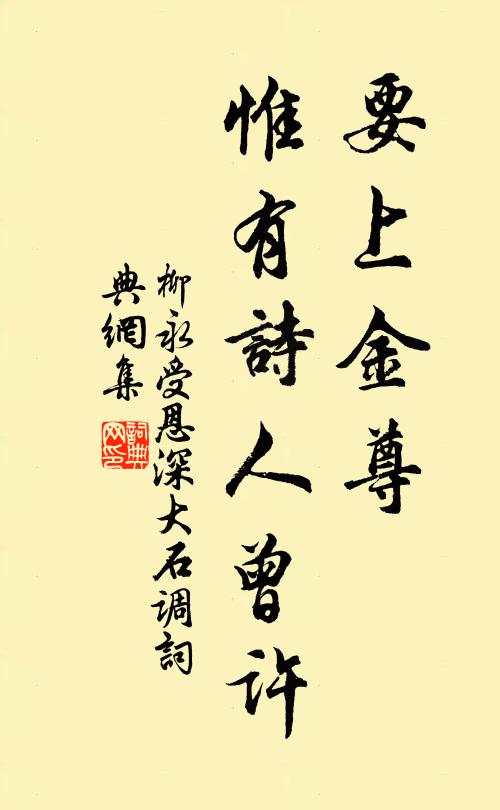 要上金尊
惟有詩人曾許
柳永受恩深大石调詞
典網集
詞典
网印